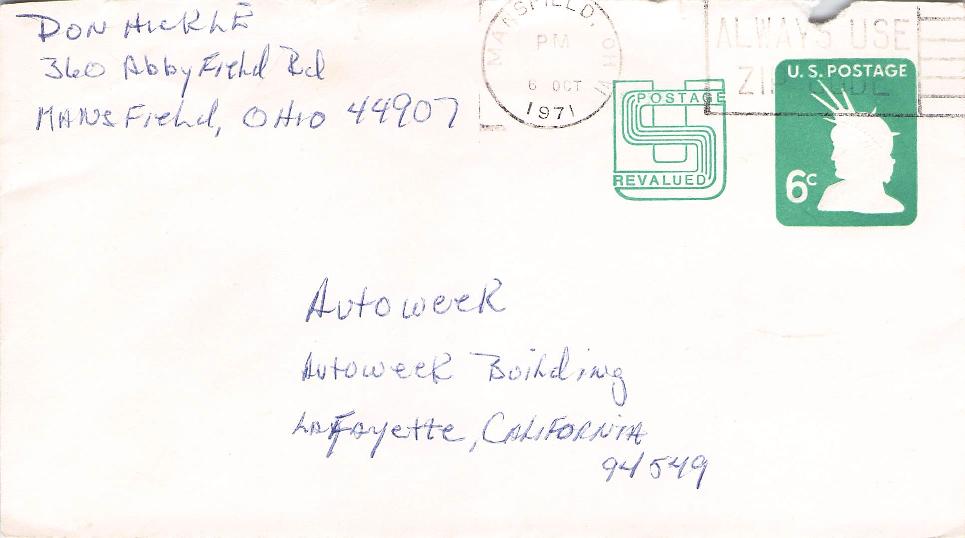 DON HICKLE
360 Abby Field Rd
MANSField, OHIO 44907
MANSFIELD, OH
PM
6 OCT
1971
ALWAYS USE
ZIP CODE
POSTAGE
REVALUED
U.S. POSTAGE
6c
Autoweek
Autoweek Building
LAFayette, CALIFORNIA
94549